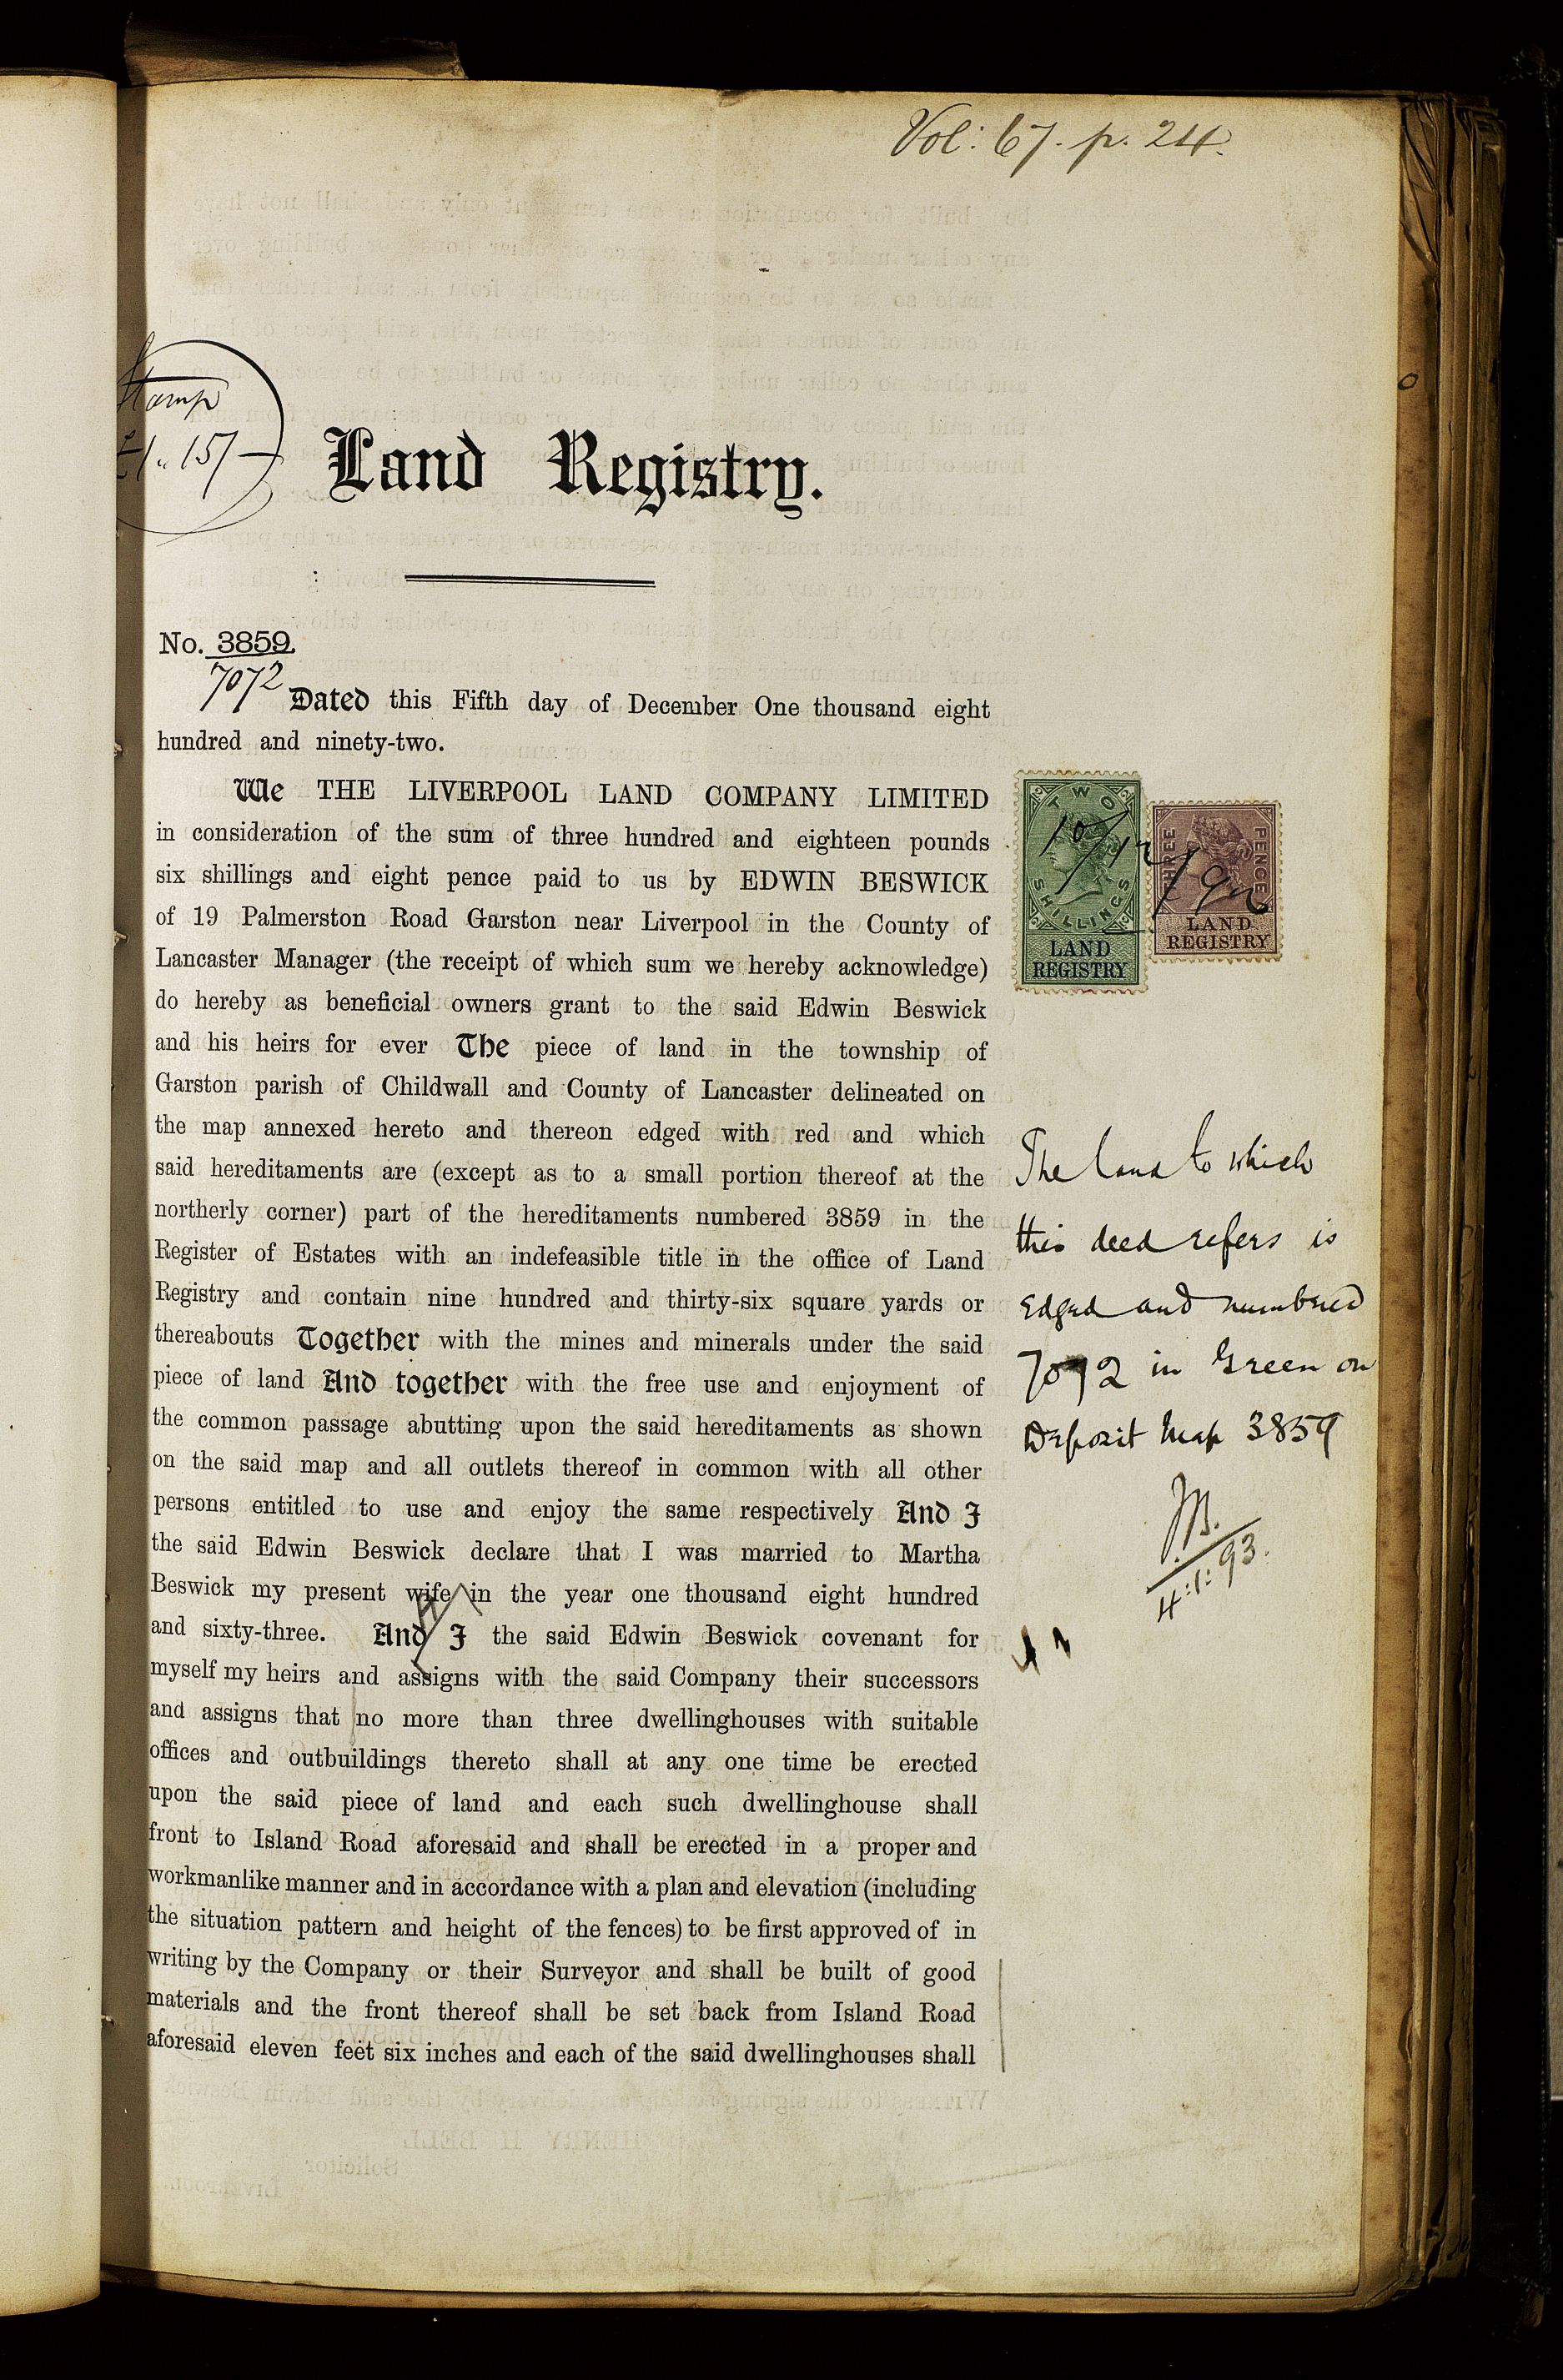 Vol: 67. p. 24.
Stamp
£1.. 15/-
Land Registry.
No. 3859.
7072
Dated this Fifth day of December One thousand eight
hundred and ninety-two.
We THE LIVERPOOL LAND COMPANY LIMITED
in consideration of the sum of three hundred and eighteen pounds
six shillings and eight pence paid to us by EDWIN BESWICK
of 19 Palmerston Road Garston near Liverpool in the County of
Lancaster Manager (the receipt of which sum we hereby acknowledge)
do hereby as beneficial owners grant to the said Edwin Beswick
and his heirs for ever The piece of land in the township of
Garston parish of Childwall and County of Lancaster delineated on
the map annexed hereto and thereon edged with red and which
said hereditaments are (except as to a small portion thereof at the
northerly corner) part of the hereditaments numbered 3859 in the
Register of Estates with an indefeasible title in the office of Land
Registry and contain nine hundred and thirty-six square yards or
thereabouts Together with the mines and minerals under the said
piece of land And together with the free use and enjoyment of
the common passage abutting upon the said hereditaments as shown
on the said map and all outlets thereof in common with all other
persons entitled to use and enjoy the same respectively And I
the said Edwin Beswick declare that I was married to Martha
Beswick my present wife in the year one thousand eight hundred
and sixty-three. And I the said Edwin Beswick covenant for
myself my heirs and assigns with the said Company their successors
and assigns that no more than three dwellinghouses with suitable
offices and outbuildings thereto shall at any one time be erected
upon the said piece of land and each such dwellinghouse shall
front to Island Road aforesaid and shall be erected in a proper and
workmanlike manner and in accordance with a plan and elevation (including
the situation pattern and height of the fences) to be first approved of in
writing by the Company or their Surveyor and shall be built of good
materials and the front thereof shall be set back from Island Road
aforesaid eleven feet six inches and each of the said dwellinghouses shall
TWO
SHILLINGS
LAND
REGISTRY
THREE
PENCE
LAND
REGISTRY
10/12/92
The land to which
this deed refers is
edged and numbered
7072 in Green on
Deposit Map 3859
4:1:93.